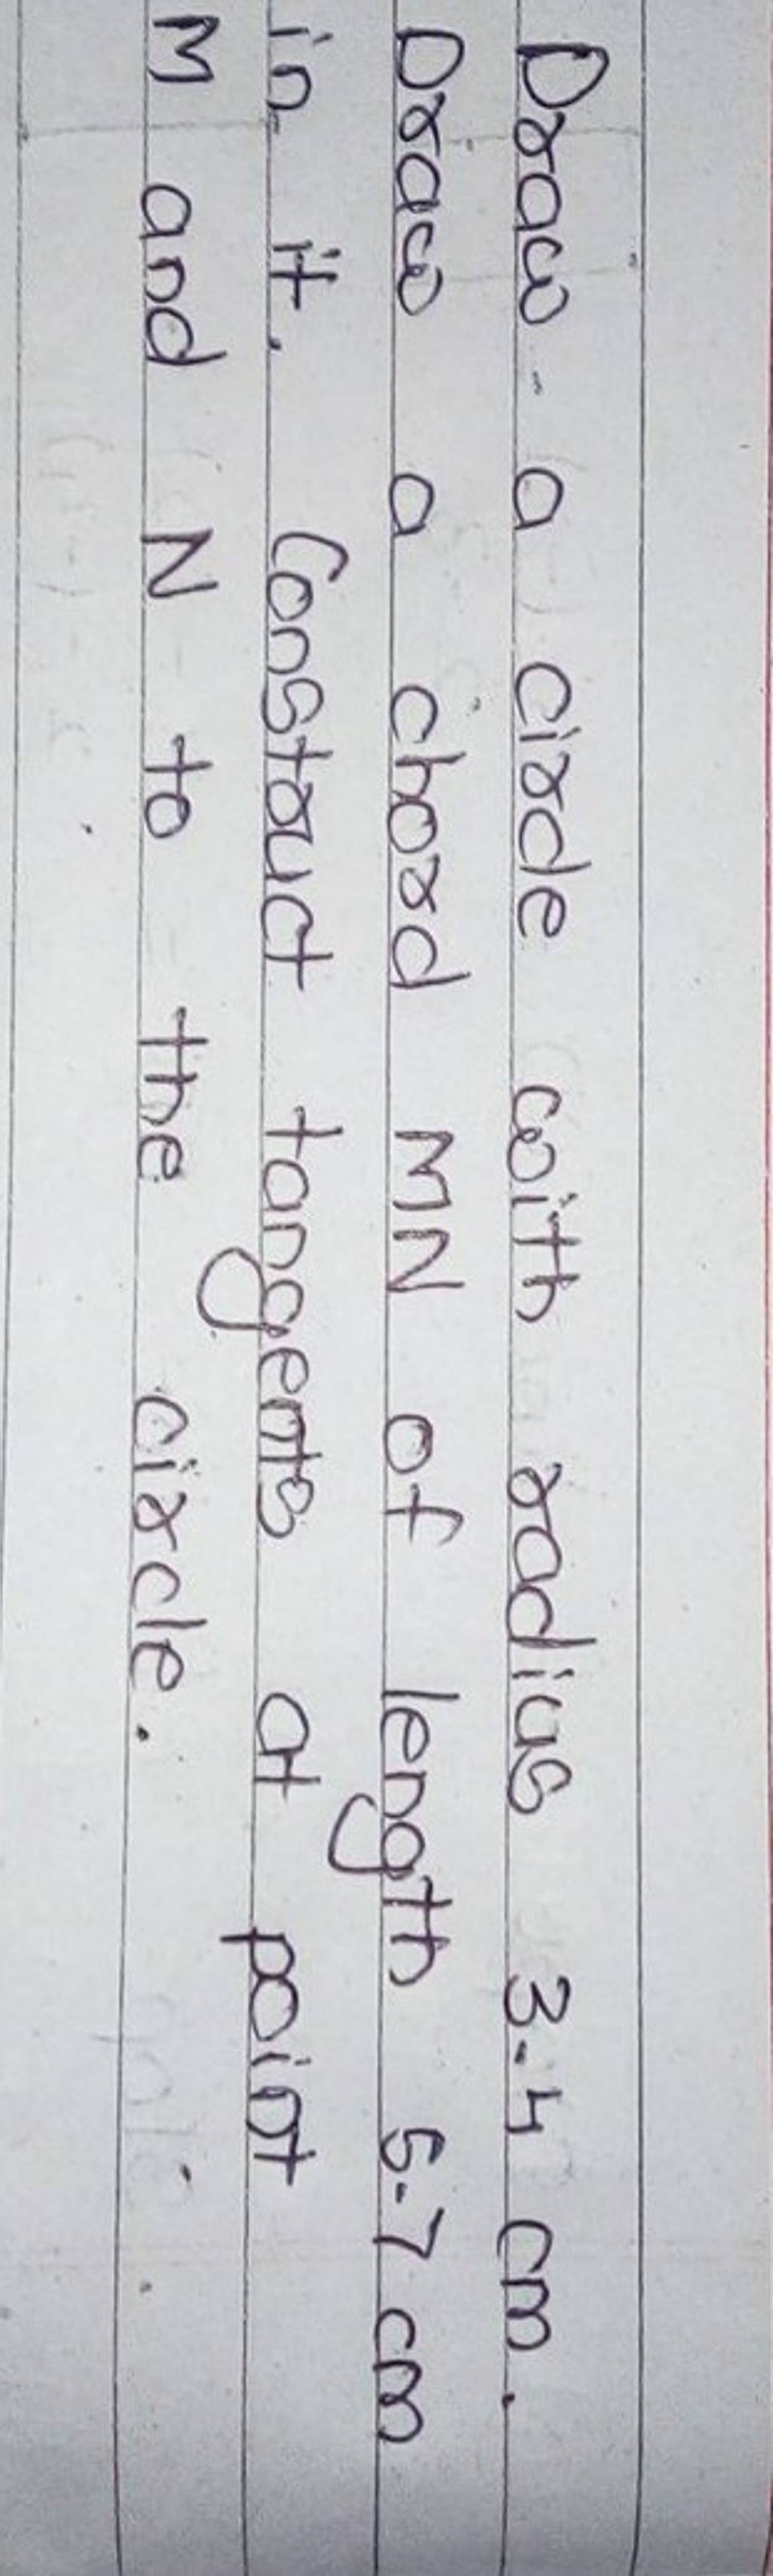 Draw a circle with radius 3.4 cm.
Draw a chord MN of length 5.7 cm
in it. Construct tangents at point
M and N to the circle.